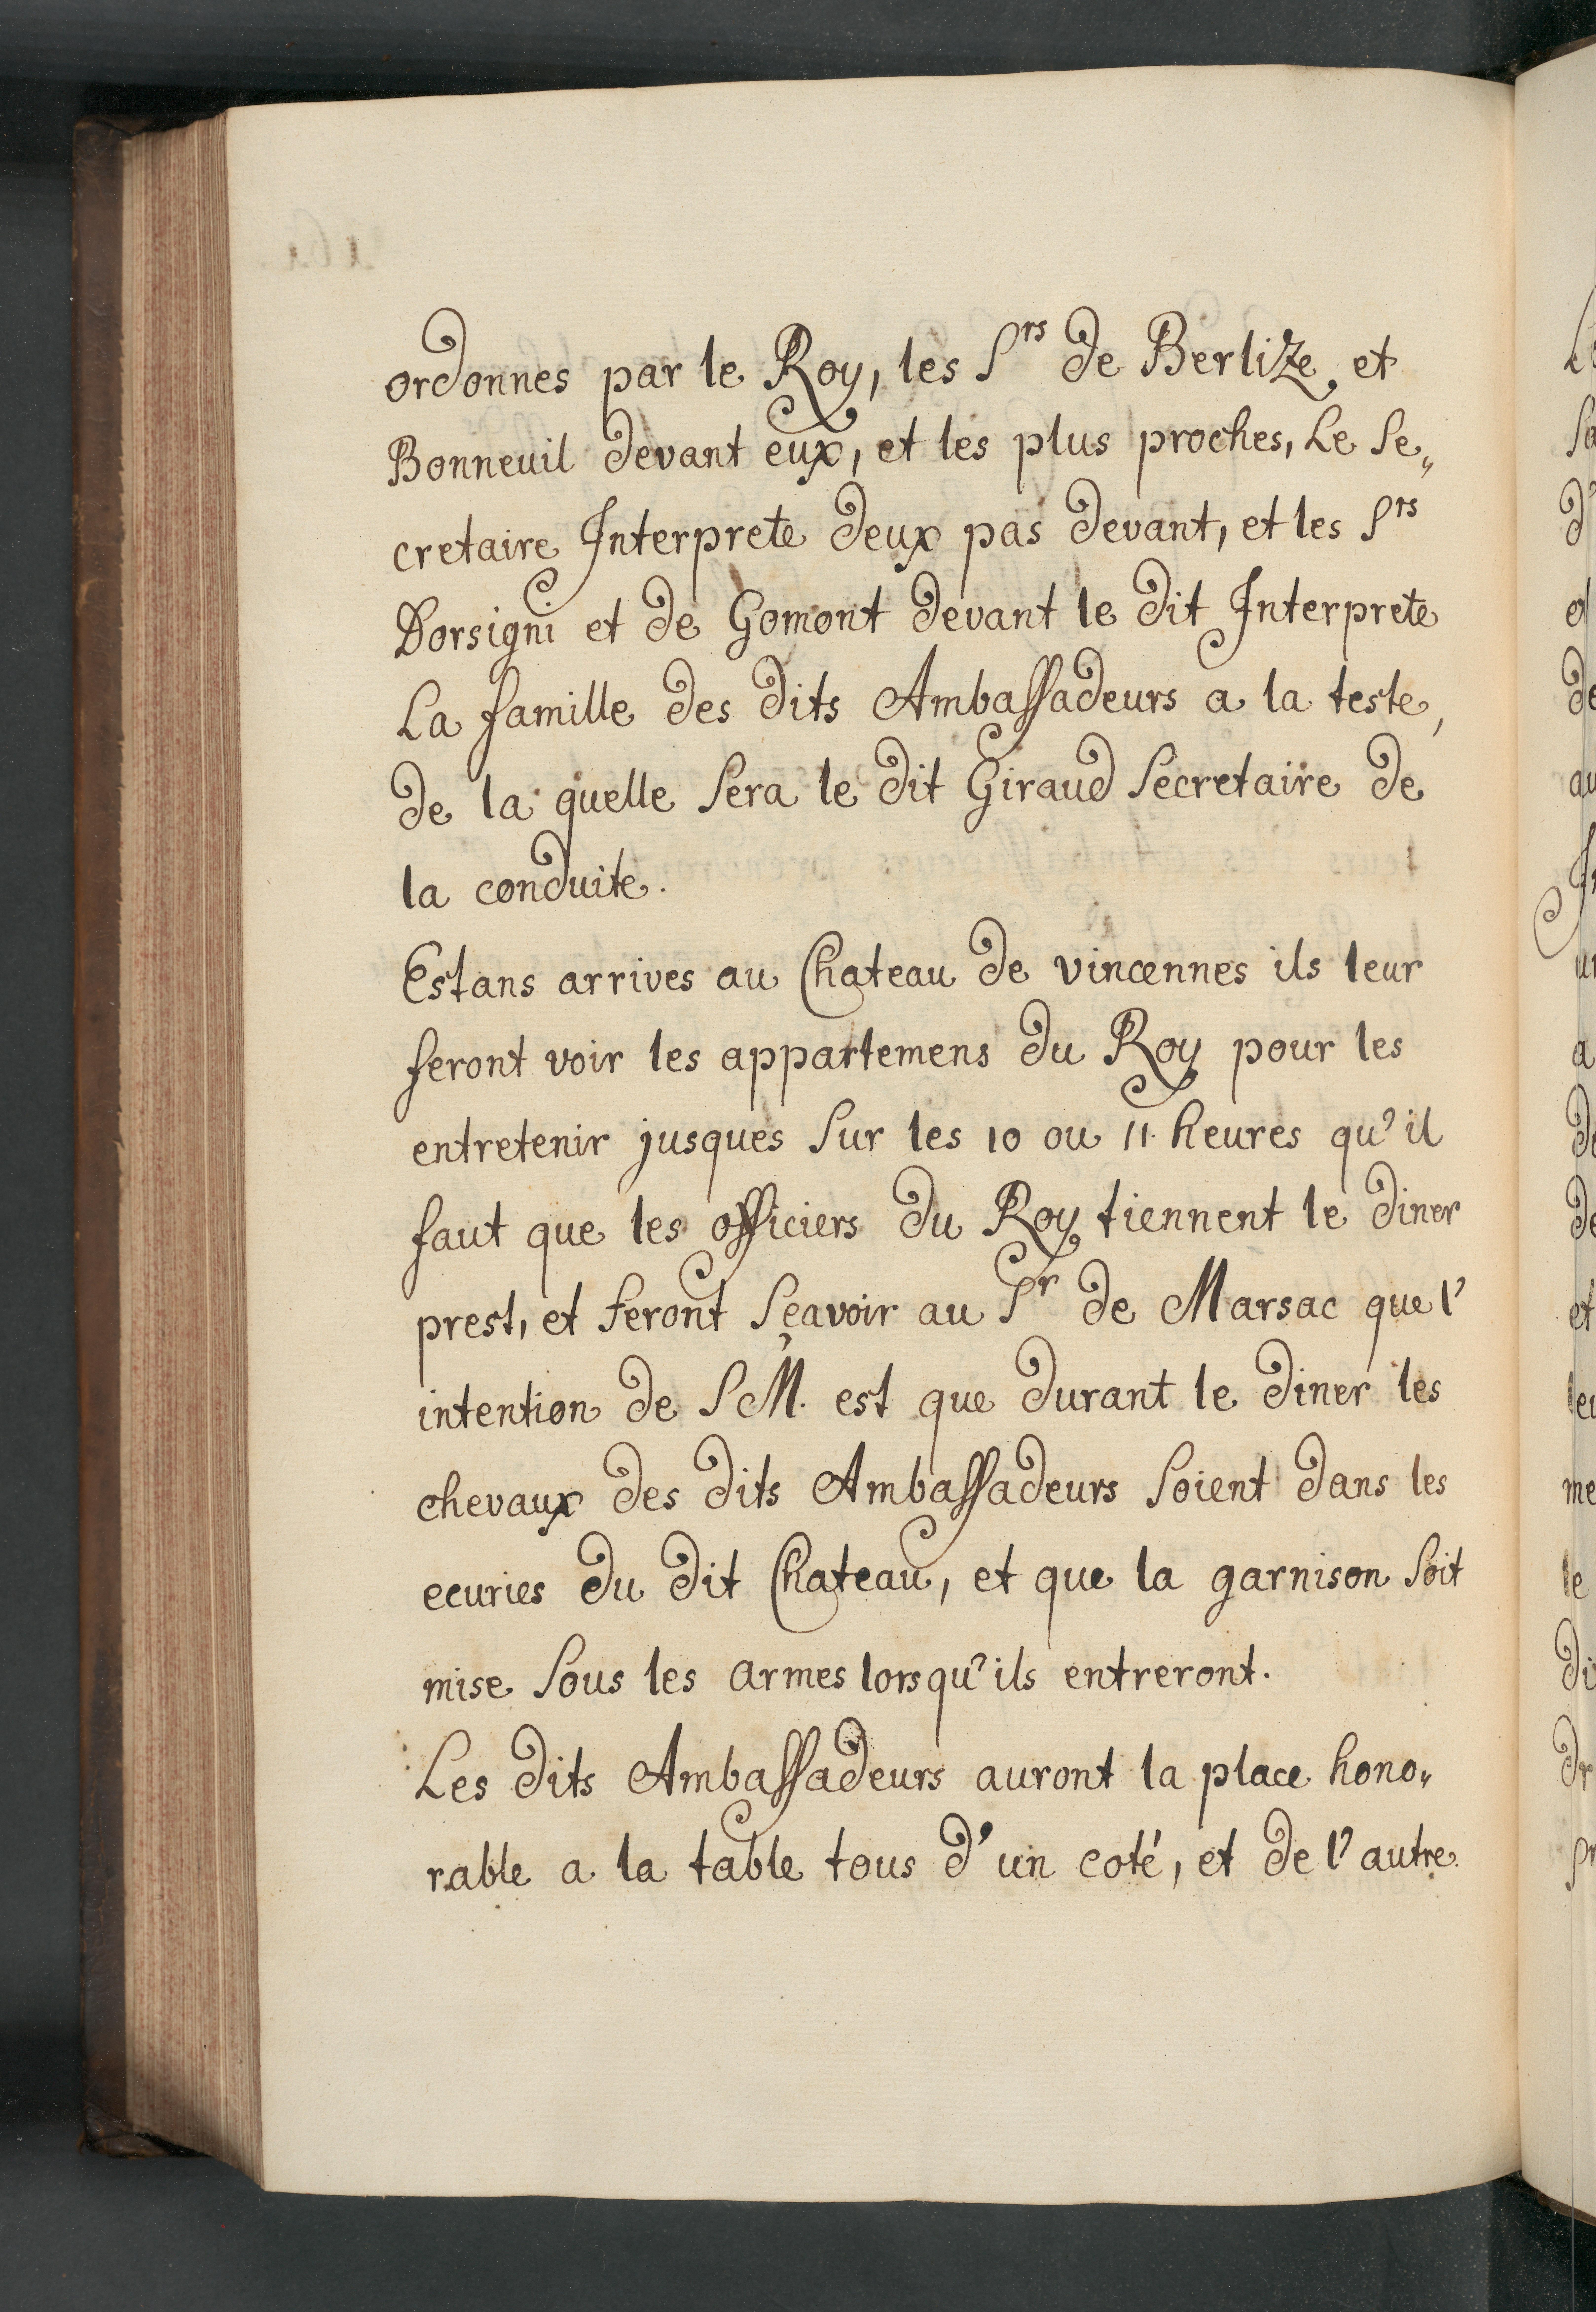 ordonnes par le Roy, les Srs de Berlize et
Bonneuil devant eux, et les plus proches, Le Se„
cretaire Interprete deux pas devant, et les Srs
Dorsigni et de Gomont devant le dit Interprete
La famille des dits Ambassadeurs a la teste,
de la quelle sera le dit Giraud Secretaire de
la conduite.
Estans arrives au Chateau de vincennes ils leur
feront voir les appartemens du Roy pour les
entretenir jusques sur les 10 ou 11. heures qu'il
faut que les officiers du Roy tiennent le diner
prest, et feront sçavoir au Sr de Marsac que l'
intention de S M. est que durant le diner les
chevaux des dits Ambassadeurs soient dans les
ecuries du dit Chateau, et que la garnison soit
mise sous les armes lorsqu'ils entreront.
Les dits Ambassadeurs auront la place hono„
rable a la table tous d'un coté, et de l'autre